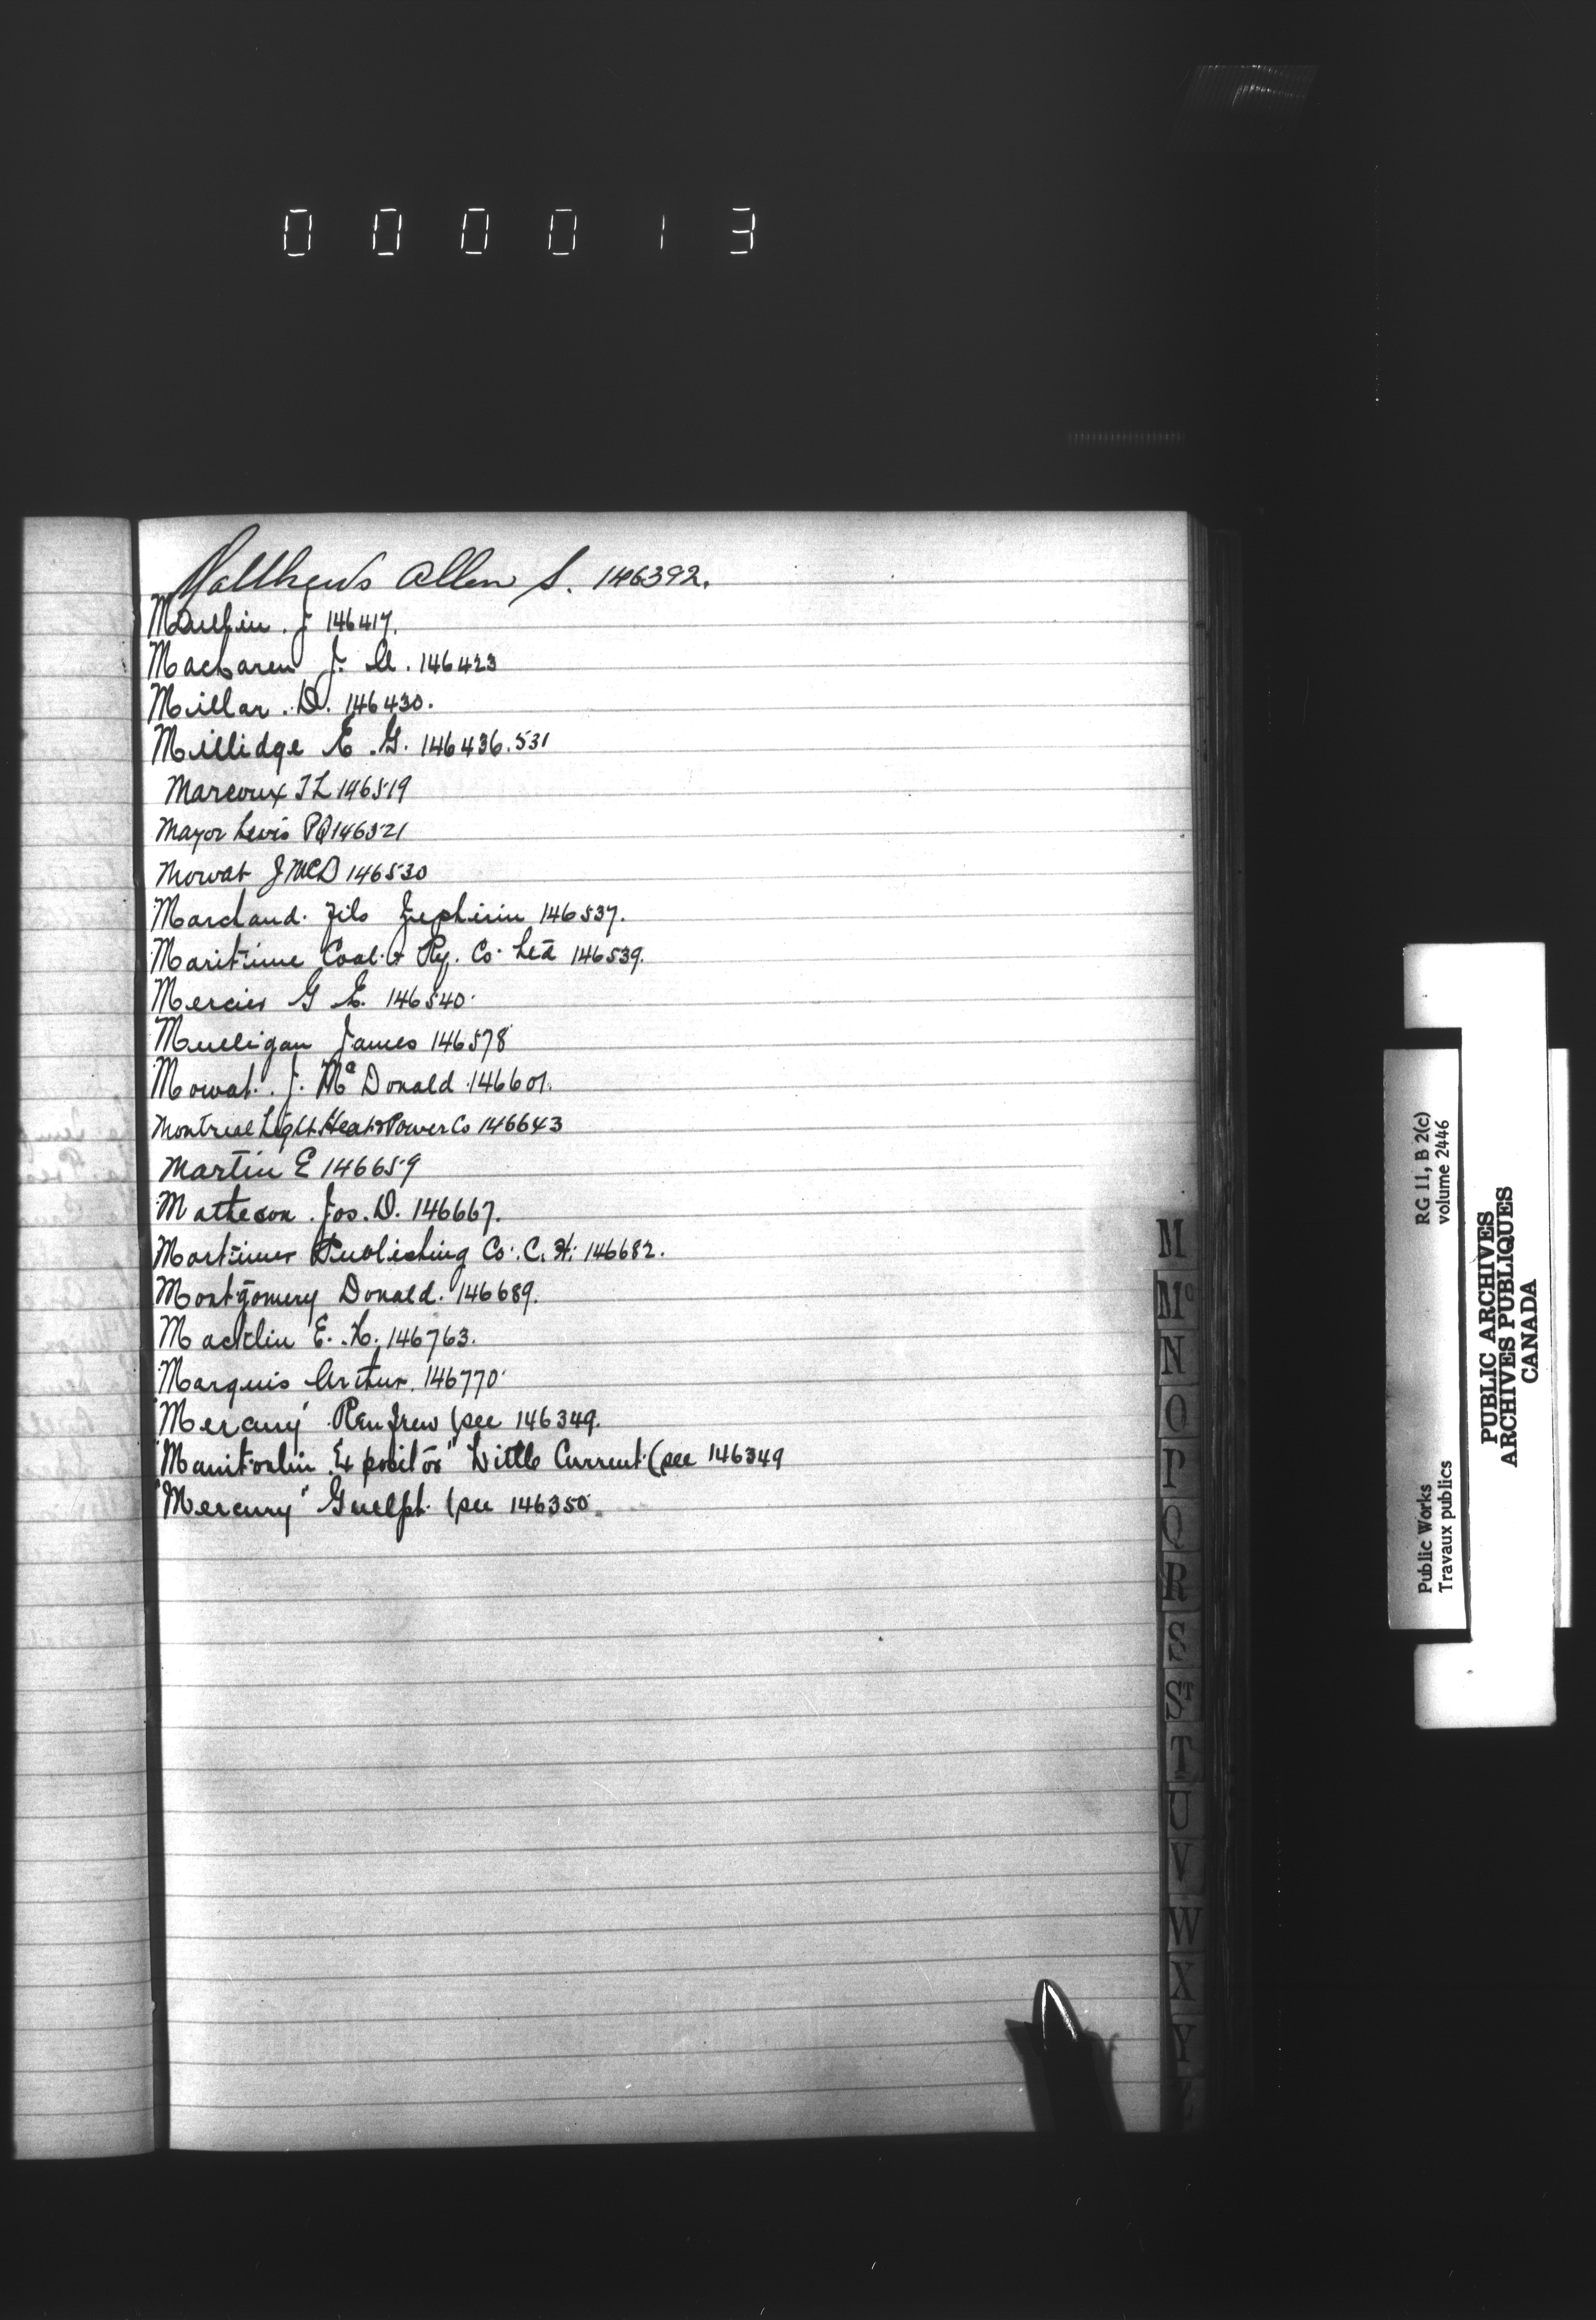 0 0 0 0 1 3
Matthews Allen S. 146392.
J 146417.
MacLaren J. A. 146423
Millar . D. 146430.
Millidge E . G. 146436.531
Marcoux J L 146519
Mayor Levis PQ 146521
Mowat J McD 146530
Marchand. Fils Zephirin 146537.
Maritime Coal & Ry. Co. Ltd 146539.
Mercier G E. 146540.
Mulligan James 146578
Mowat. J. Mc Donald 146601.
Montreal Light Heat & Power Co 146643
Martin E 146659
Matheson . Jos. D. 146667.
Mortimer Publishing Co. C. H. 146682.
Montgomery Donald. 146689.
Macklin E. H. 146763.
Marquis Arthur. 146770.
"Mercury" Renfrew (see 146349.
"Manitoulin Expositor" Little Current (see 146349
"Mercury" Guelph. (see 146350.
M
Mc
N
O
P
Q
R
S
ST
T
U
V
W
X
Y
Public Works RG 11, B 2(c)
Travaux publics volume 2446
PUBLIC ARCHIVES
ARCHIVES PUBLIQUES
CANADA